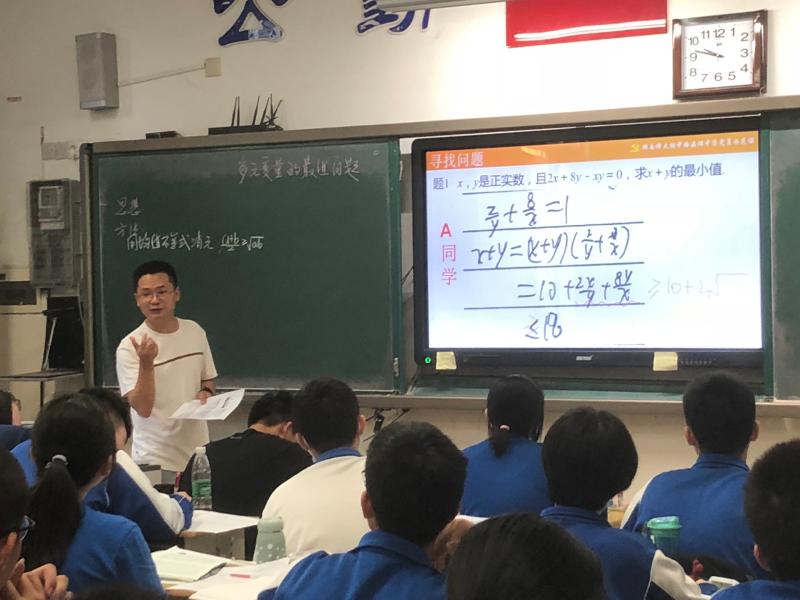 多元变量的最值问题
思想
方法
均值不等式 消元, (a+b)/2≥√ab
10 11 12 1
9 2
8 3
7 6 5 4
寻找问题
题1 x，y是正实数，且2x+8y－xy=0，求x+y的最小值.
A
同
学
2/y+8/x=1
x+y=(x+y)(2/y+8/x)
=10+2x/y+8y/x ≥10+2√
≥18